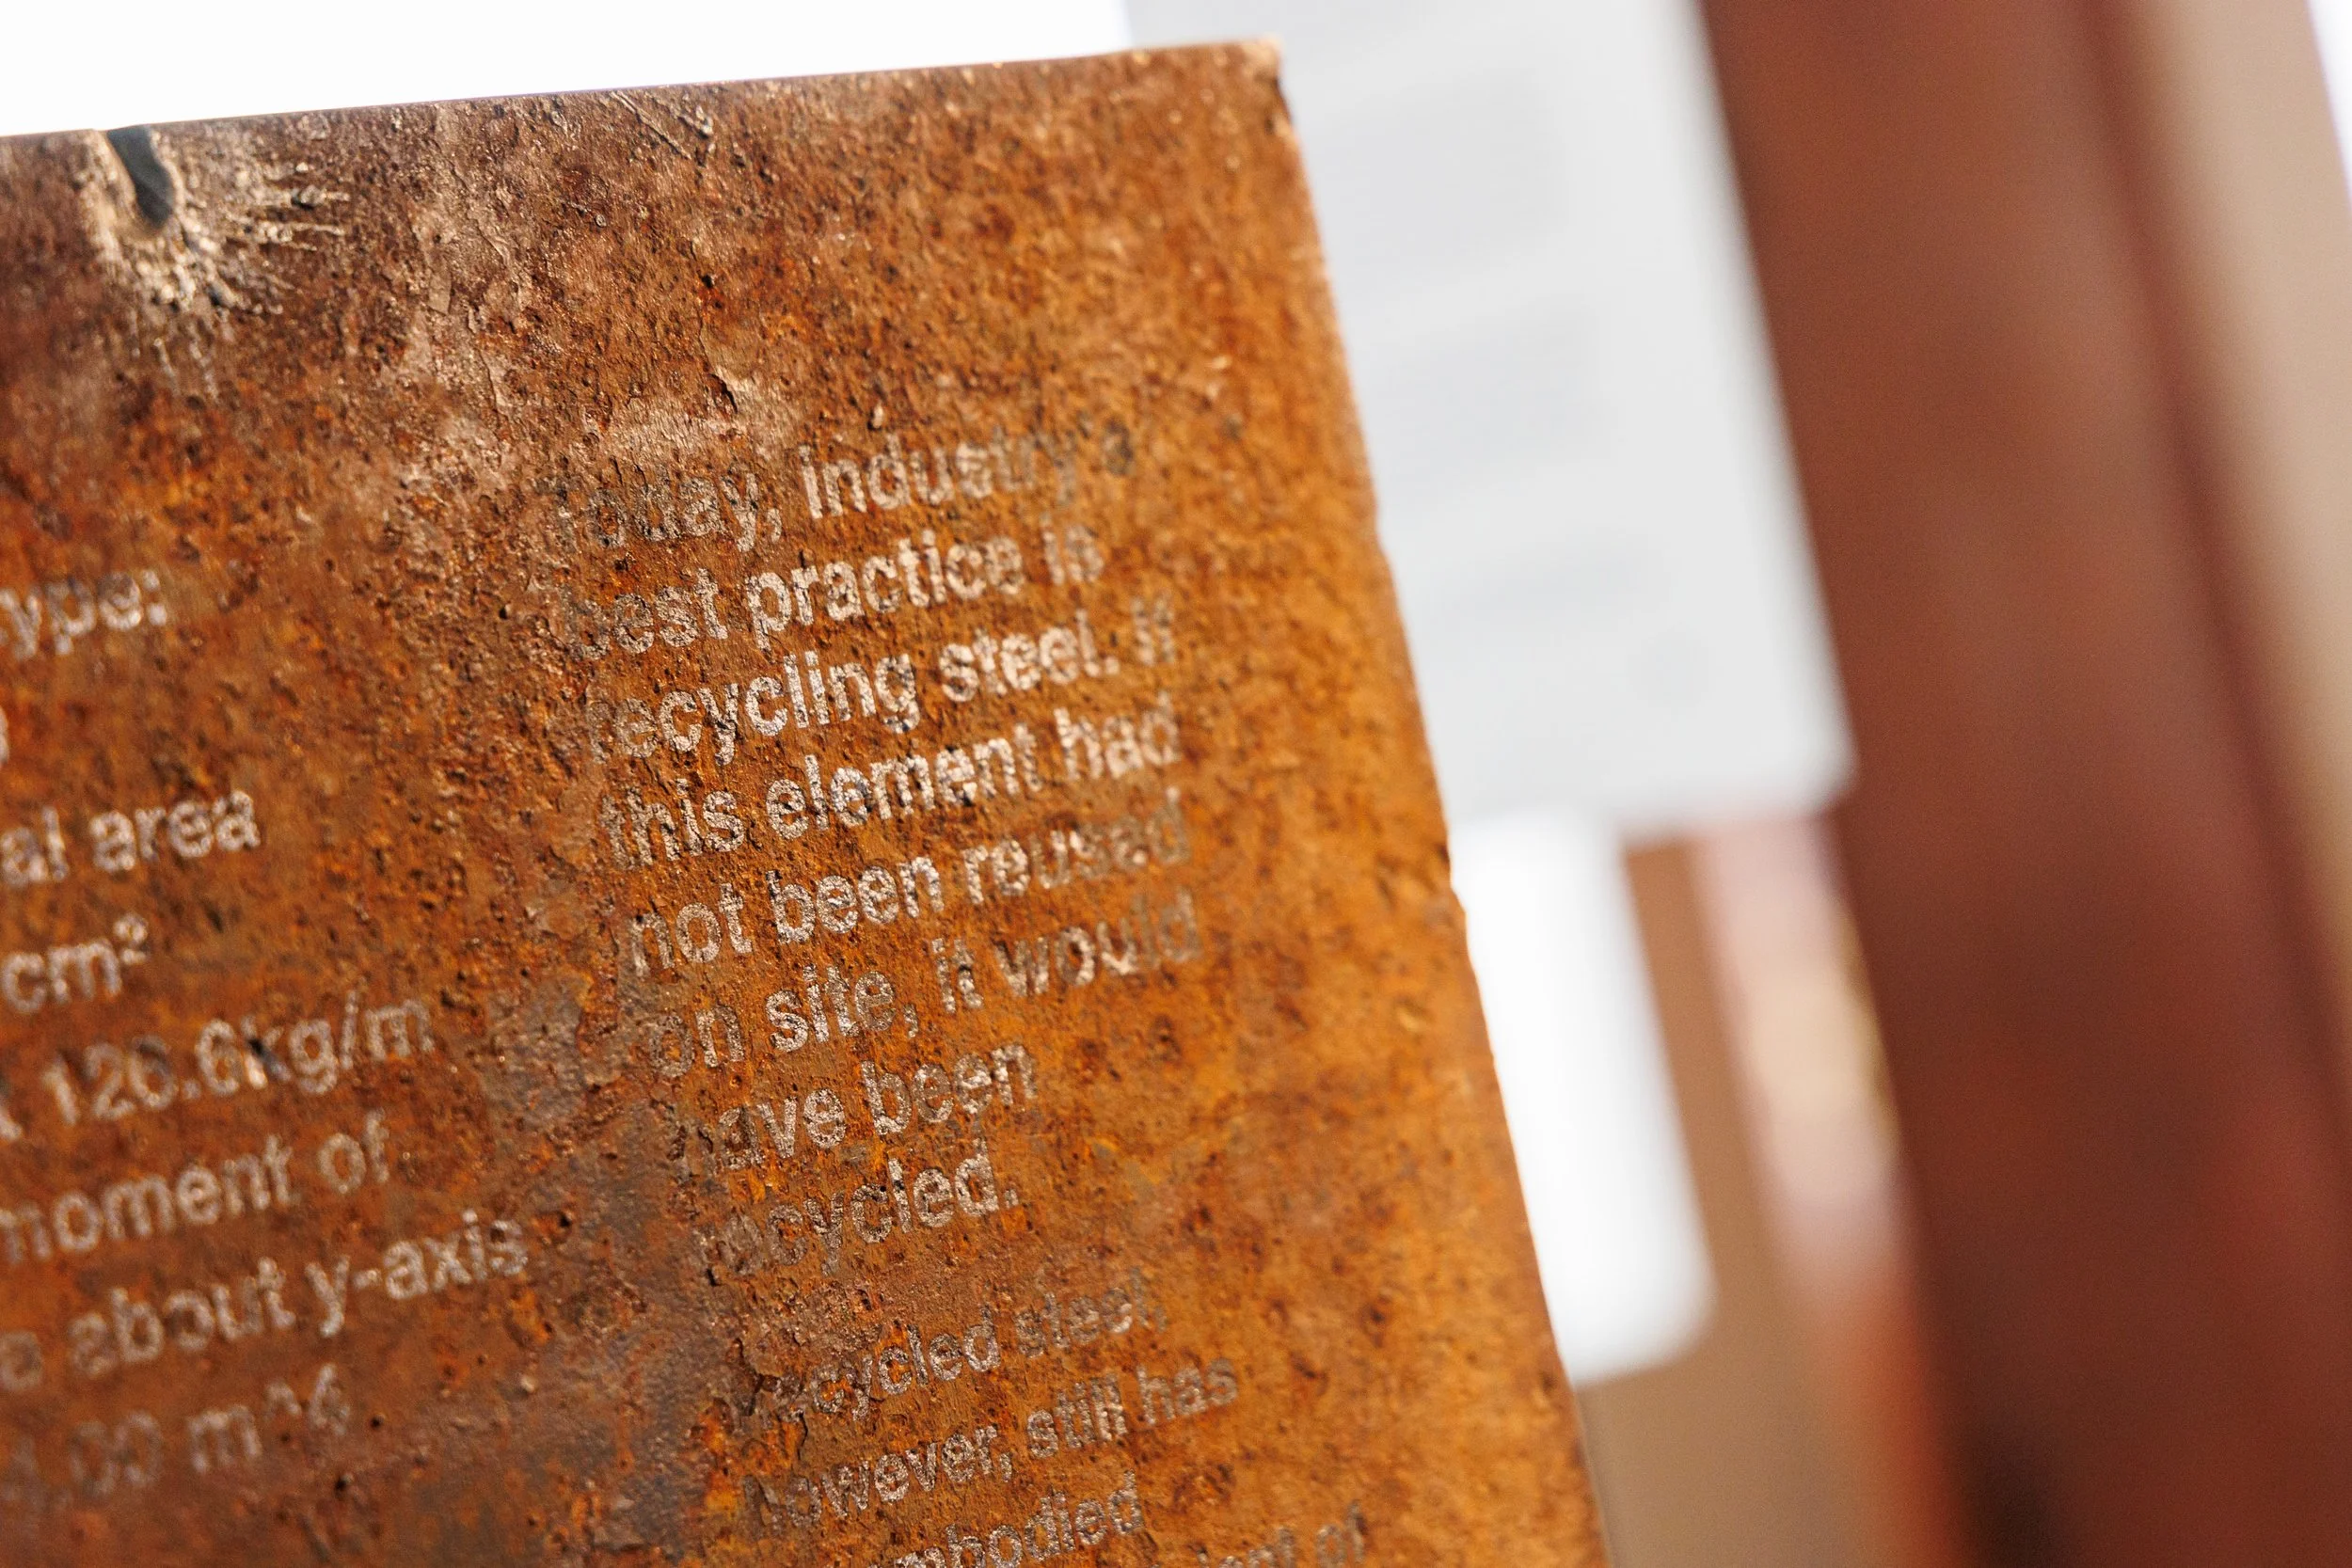 ype:
al area
cm²
120.6kg/m
moment of
about y-axis
.00 m^4
Today, industry's
best practice is
recycling steel. If
this element had
not been reused
on site, it would
have been
recycled.
Recycled steel,
however, still has
embodied
of